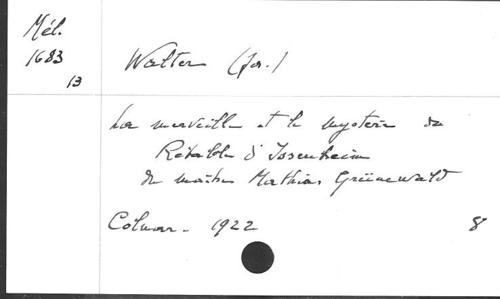 Mél.
1683
13
Walter (Jos.)
La merveille et le mystère du
Rétable d'Issenheim
du maître Mathias Grünewald
Colmar - 1922
8